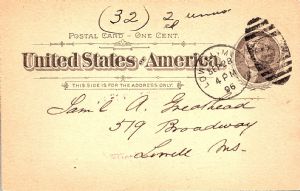 (32) 2
POSTAL CARD – ONE CENT.
United States of America.
THIS SIDE IS FOR THE ADDRESS ONLY.
LOWELL, MASS.
SEP 28
4 PM
96
Sam'l A. Greathead
519 Broadway
Lowell Ms.